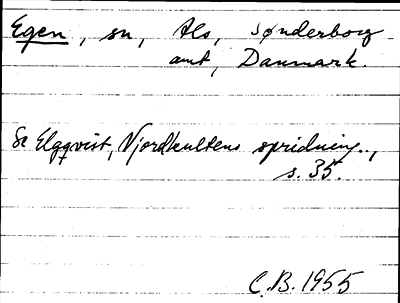 Egen, sn, Als, Sønderborg
amt, Danmark.
Se Elgqvist, Njordkultens spridning..,
s. 35.
C.B. 1955